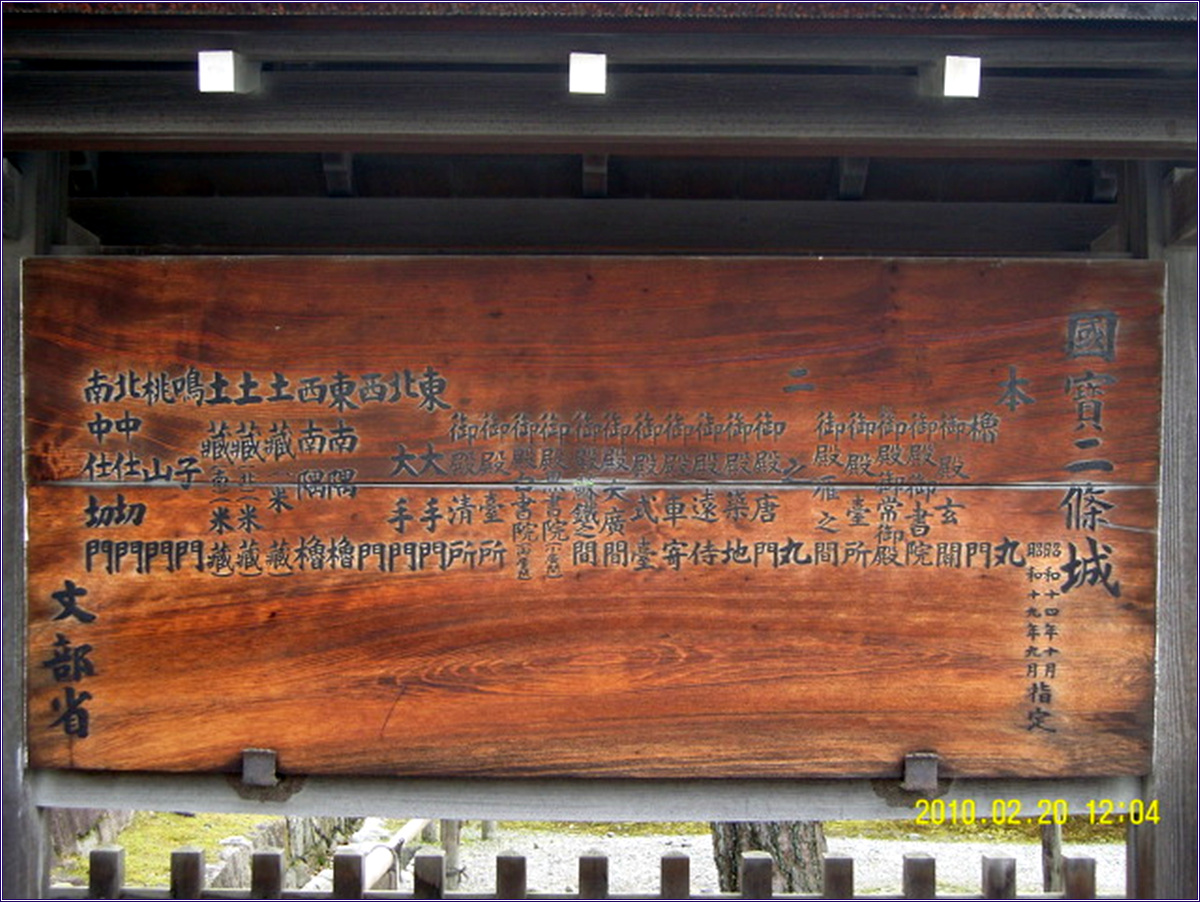 國寶二條城
昭和十四年十月
昭和十九年九月指定
本丸
櫓門
御殿玄關
御殿御書院
御殿御常御殿
御殿臺所
御殿雁之間
二之丸
御殿唐門
御殿築地
御殿遠侍
御殿車寄
御殿式臺
御殿大廣間
御殿蘇鐵之間
御殿黒書院
御殿白書院
御殿臺所
御殿清所
東大手門
北大手門
西門
東南隅櫓
西南隅櫓
土藏(米藏)
土藏(北米藏)
土藏(南米藏)
鳴子門
桃山門
北中仕切門
南中仕切門
文部省
2010.02.20 12:04